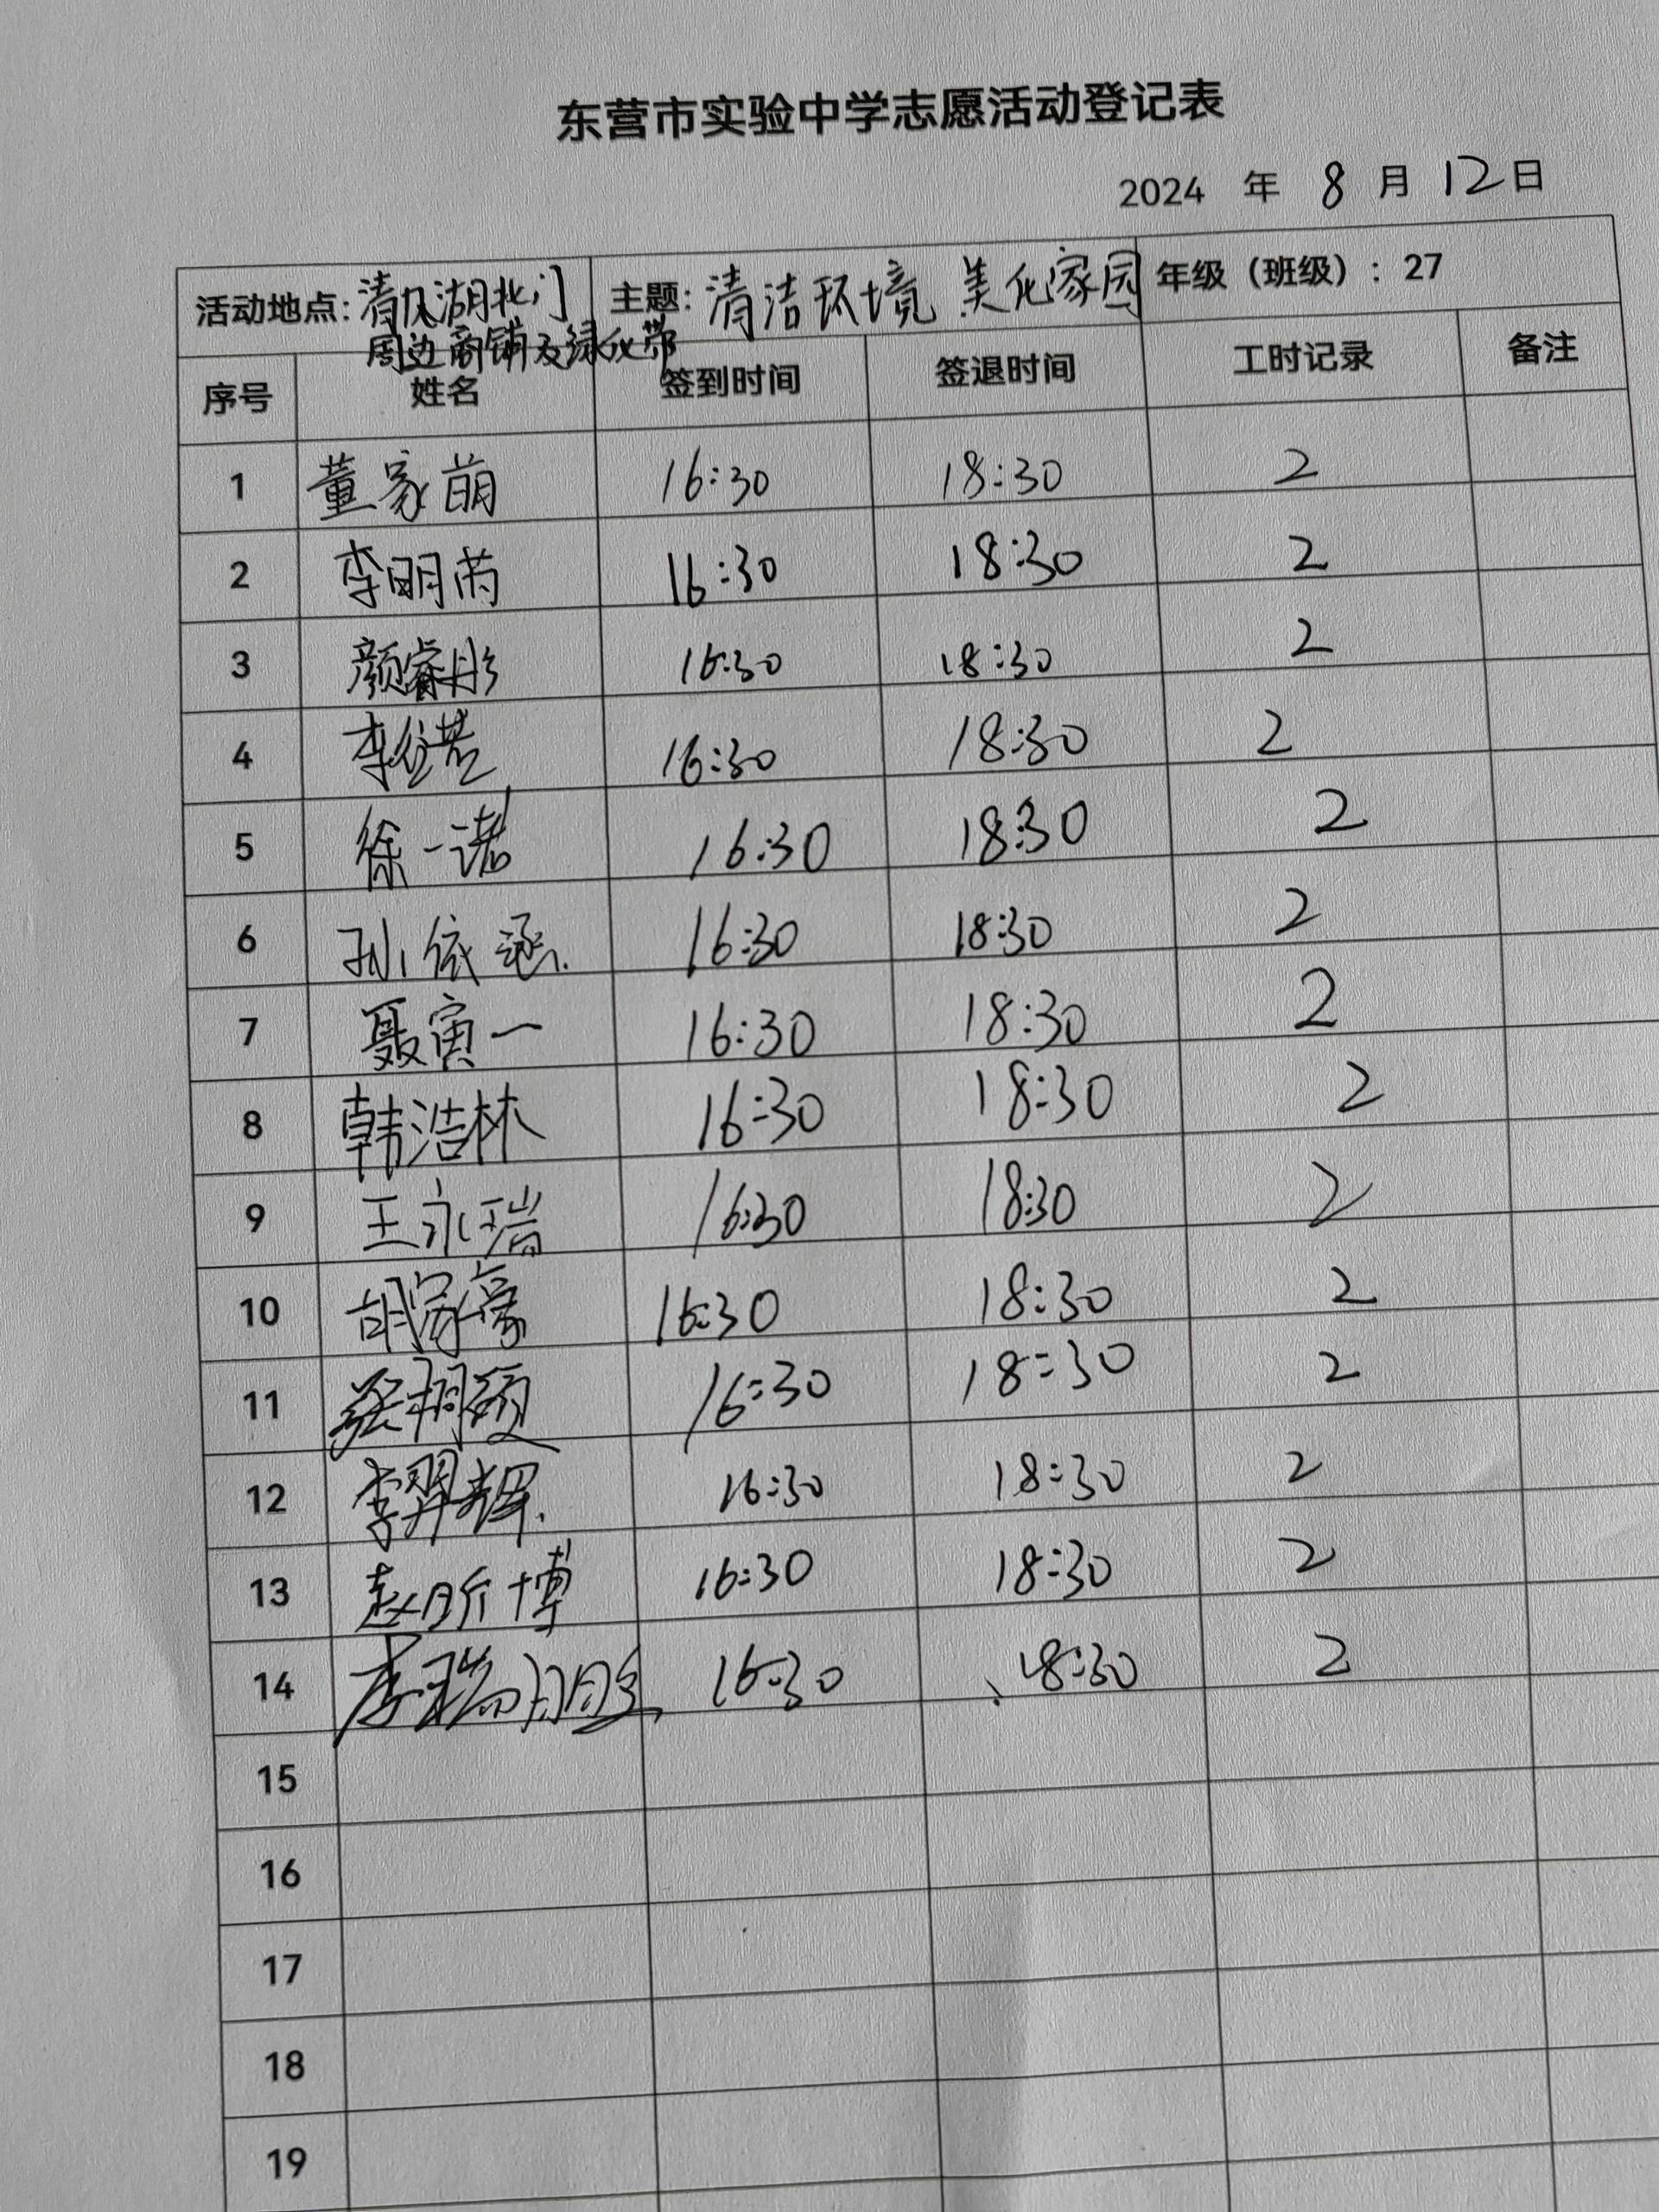 东营市实验中学志愿活动登记表
2024 年 8 月 12 日
活动地点: 清风湖北门 主题: 清洁环境 美化家园 年级（班级）: 27
周边商铺及绿化带
序号 姓名 签到时间 签退时间 工时记录 备注
1 董家萌 16:30 18:30 2
2 李明芮 16:30 18:30 2
3 颜睿彤 16:30 18:30 2
4 李 16:30 18:30 2
5 徐一诺 16:30 18:30 2
6 孙依涵 16:30 18:30 2
7 聂寅一 16:30 18:30 2
8 韩浩林 16:30 18:30 2
9 王永瑞 16:30 18:30 2
10 胡家豪 16:30 18:30 2
11 张翔硕 16:30 18:30 2
12 李羿辉 16:30 18:30 2
13 赵昕博 16:30 18:30 2
14 李瑞 16:30 18:30 2
15
16
17
18
19